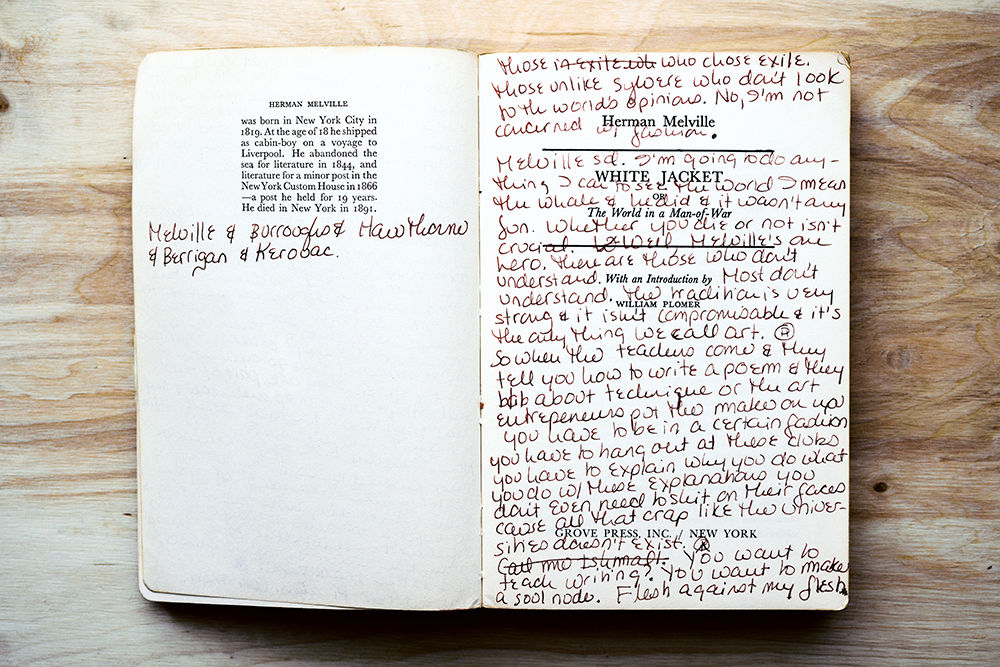 HERMAN MELVILLE
was born in New York City in
1819. At the age of 18 he shipped
as cabin-boy on a voyage to
Liverpool. He abandoned the
sea for literature in 1844, and
literature for a minor post in the
New York Custom House in 1866
—a post he held for 19 years.
He died in New York in 1891.
Melville & Burroughs & Hawthorne
& Berrigan & Kerouac.
those in exile who chose exile.
those unlike Sylvere who don't look
to the world's opinions. No, I'm not
Herman Melville
concerned w/ fashion.
Melville sd. I'm going to do any-
WHITE JACKET
thing I can to see the world I mean
OR
the whale & he did & it wasn't any
The World in a Man-of-War
fun. Whether you die or not isn't
crucial. Well Melville's one
hero. there are those who don't
With an Introduction by
understand. Most don't
understand. The tradition is very
WILLIAM PLOMER
strong & it isn't compromisable & it's
the only thing we call art.
So when the teachers come & they
tell you how to write a poem & they
blab about technique or the art
entrepeneurs put the make on you
you have to be in a certain fashion
you have to hang out at these clubs
you have to explain why you do what
you do w/ these explanations you
don't even need to shit on their faces
cause all that crap like the univer-
GROVE PRESS, INC. / NEW YORK
sities doesn't exist.
Call me Ishmael. You want to
teach writing? You want to make
a sool node. Flesh against my flesh.